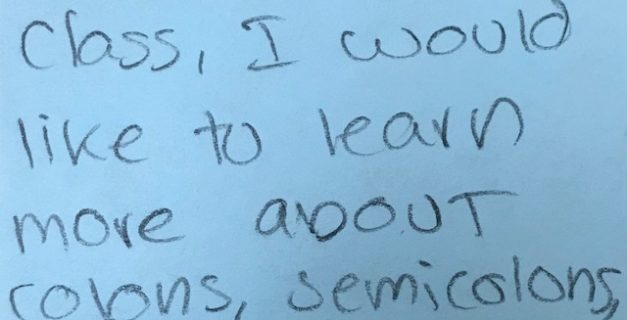 Class, I would
like to learn
more about
colons, semicolons,